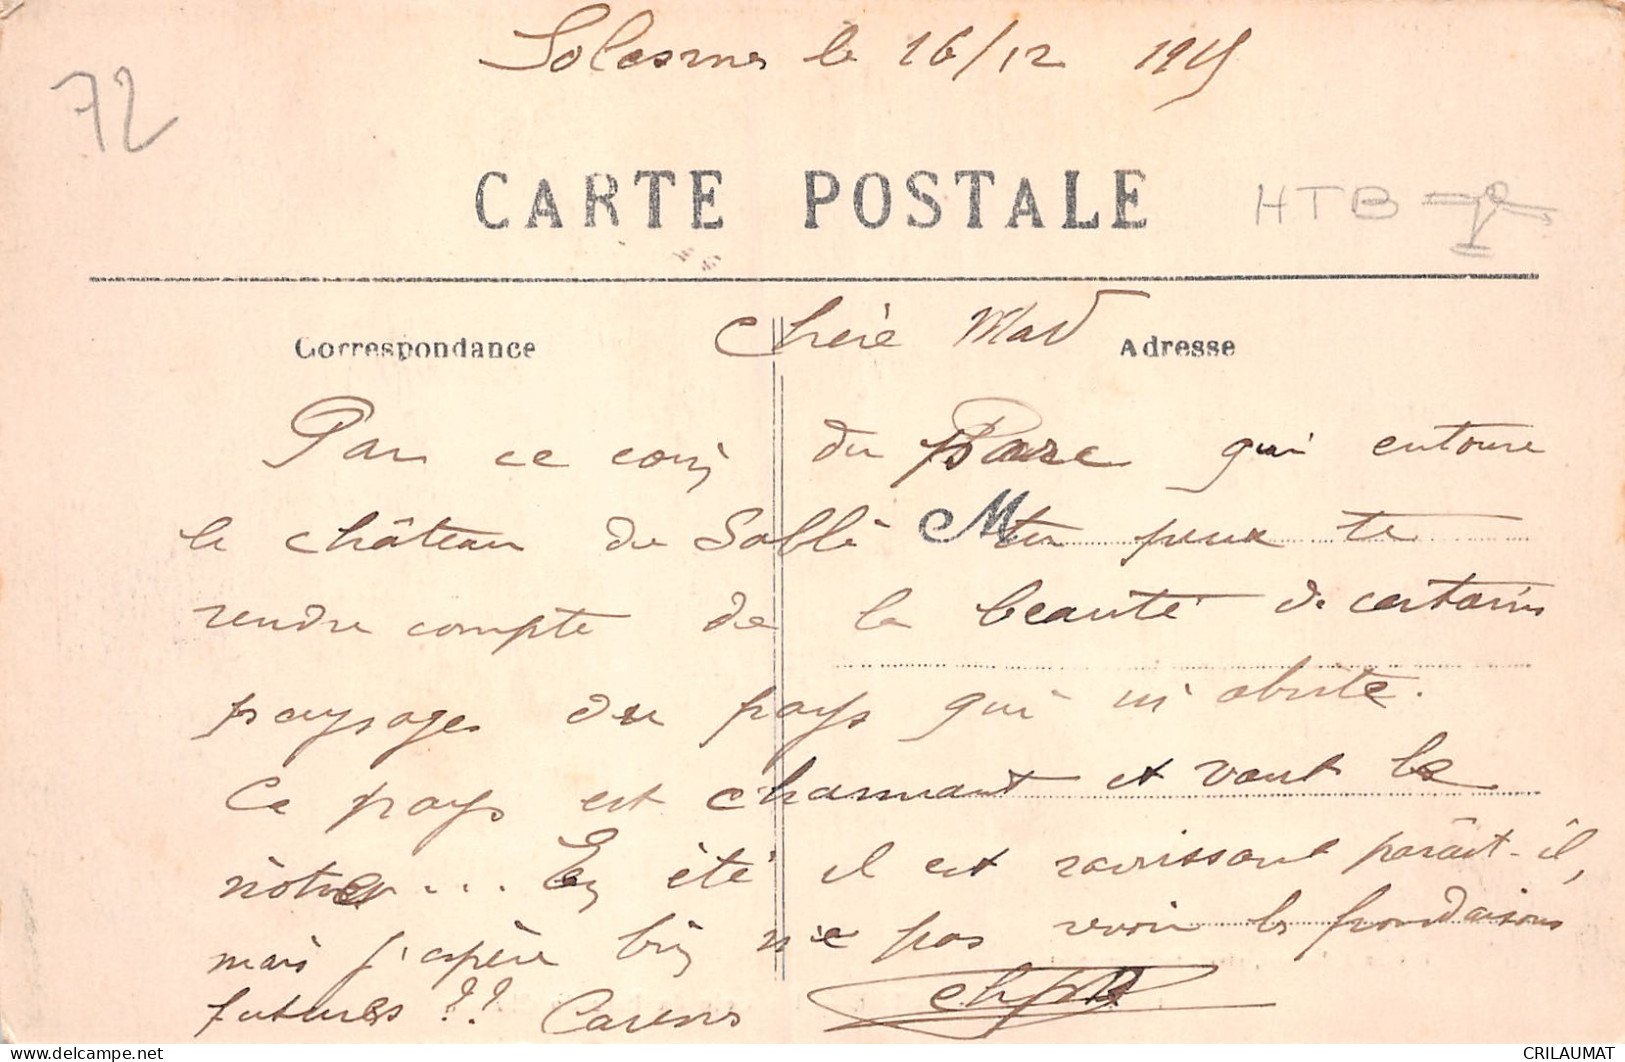 Solesmes le 16/12 1915
72
CARTE POSTALE
HTB
Correspondance
Chère Mad
Adresse
Par ce coin du Parc qui entoure
le château de Sablé M tu peux te
rendre compte de la beauté de certains
paysages du pays qui m'abrite.
Ce pays est charmant et vaut le
nôtre... En été il est ravissant paraît-il,
mais j'espère bien n'e pas revoir les frondaisons
futures ?? Caresses
CRILAUMAT